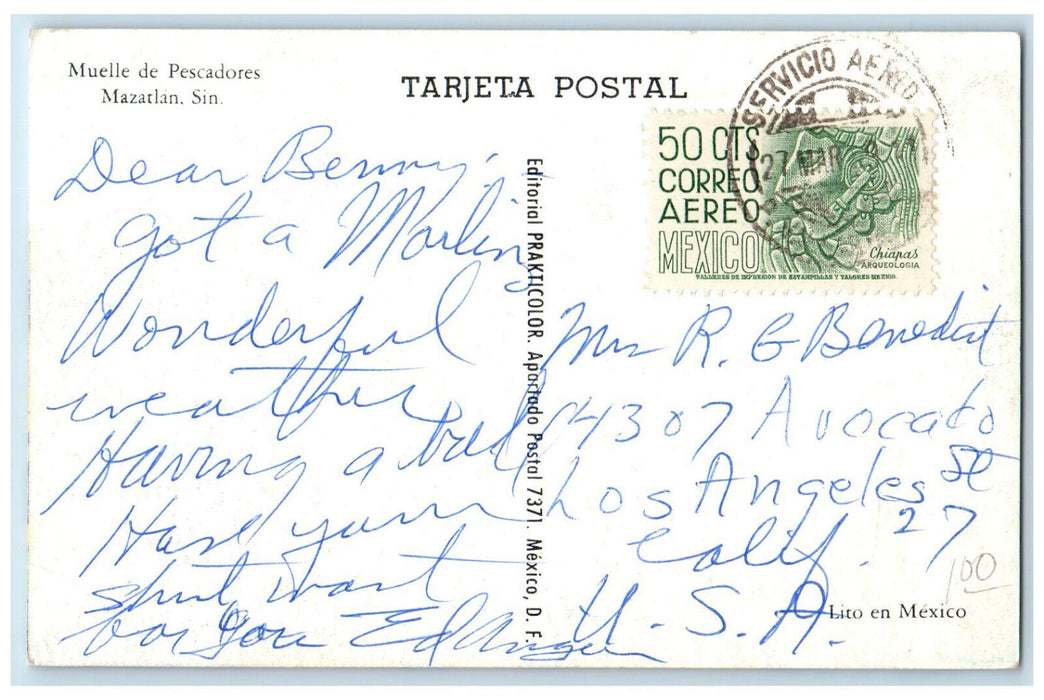 Muelle de Pescadores
Mazatlán, Sin.
TARJETA POSTAL
SERVICIO AEREO
27 MAR
50 CTS
CORREO
AEREO
MEXICO
Chiapas
ARQUEOLOGIA
TALLERES DE IMPRESION DE ESTAMPILLAS Y VALORES-MEXICO.
Dear Benny,
got a Marlin
Wonderful
weather
Having a ball
Have your
shirt, want
for you Ed
Editorial PRAKTICOLOR. Apartado Postal 7371. México, D. F.
Mrs R. G Benedict
4307 Avocado
St
Los Angeles
27
Calif.
U. S. A.
100
Lito en México